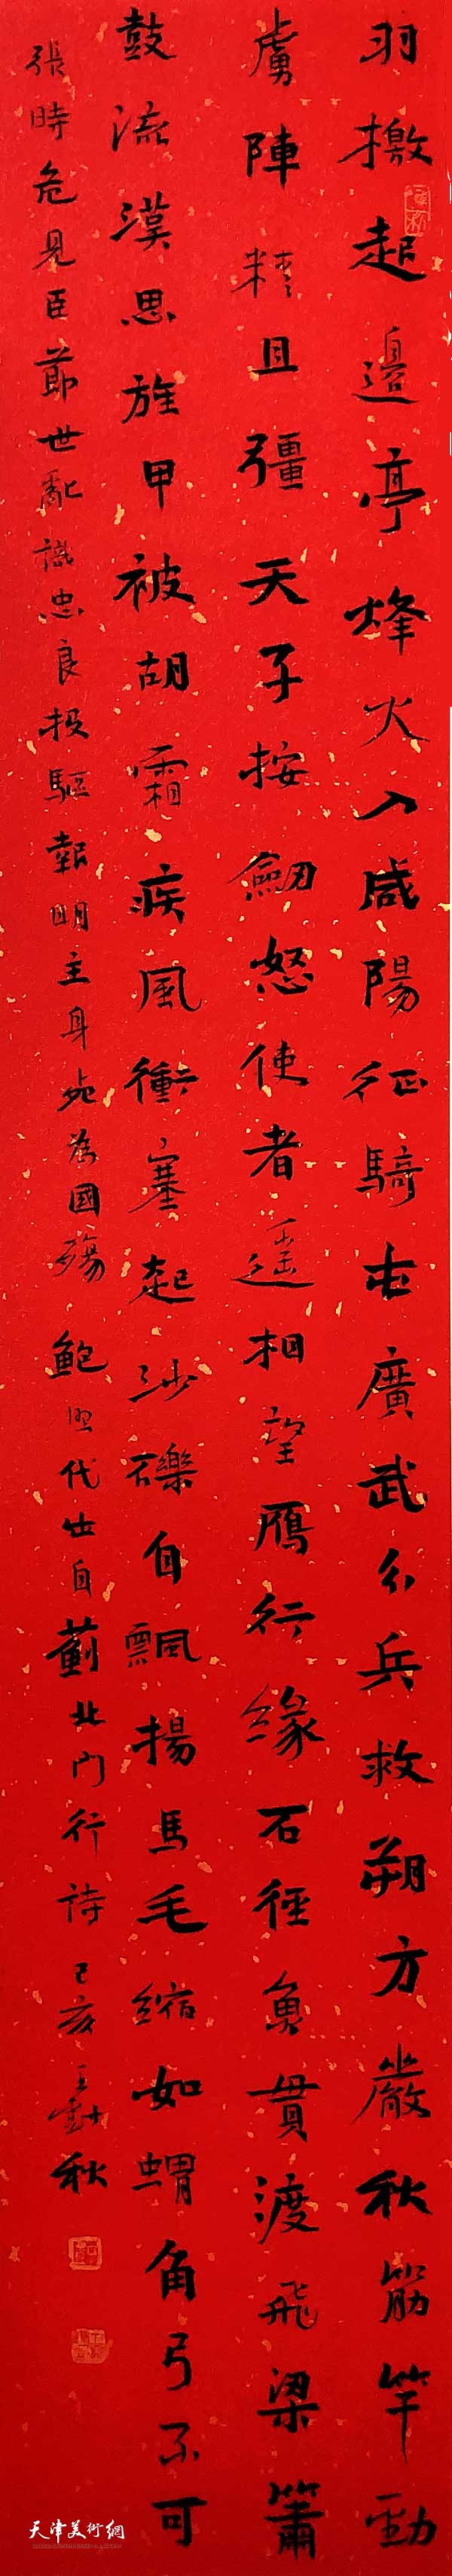 羽檄起邊亭烽火入咸陽征騎屯廣武分兵救朔方嚴秋筋竿勁
虜陣精且彊天子按劒怒使者遥相望鴈行緣石徑魚貫渡飛梁簫
鼓流漢思旌甲被胡霜疾風衝塞起沙礫自飄揚馬毛縮如蝟角弓不可
張時危見臣節世亂識忠良投軀報明主身死為國殤 鮑照代出自薊北門行詩 己亥 王勤秋
天津美術網